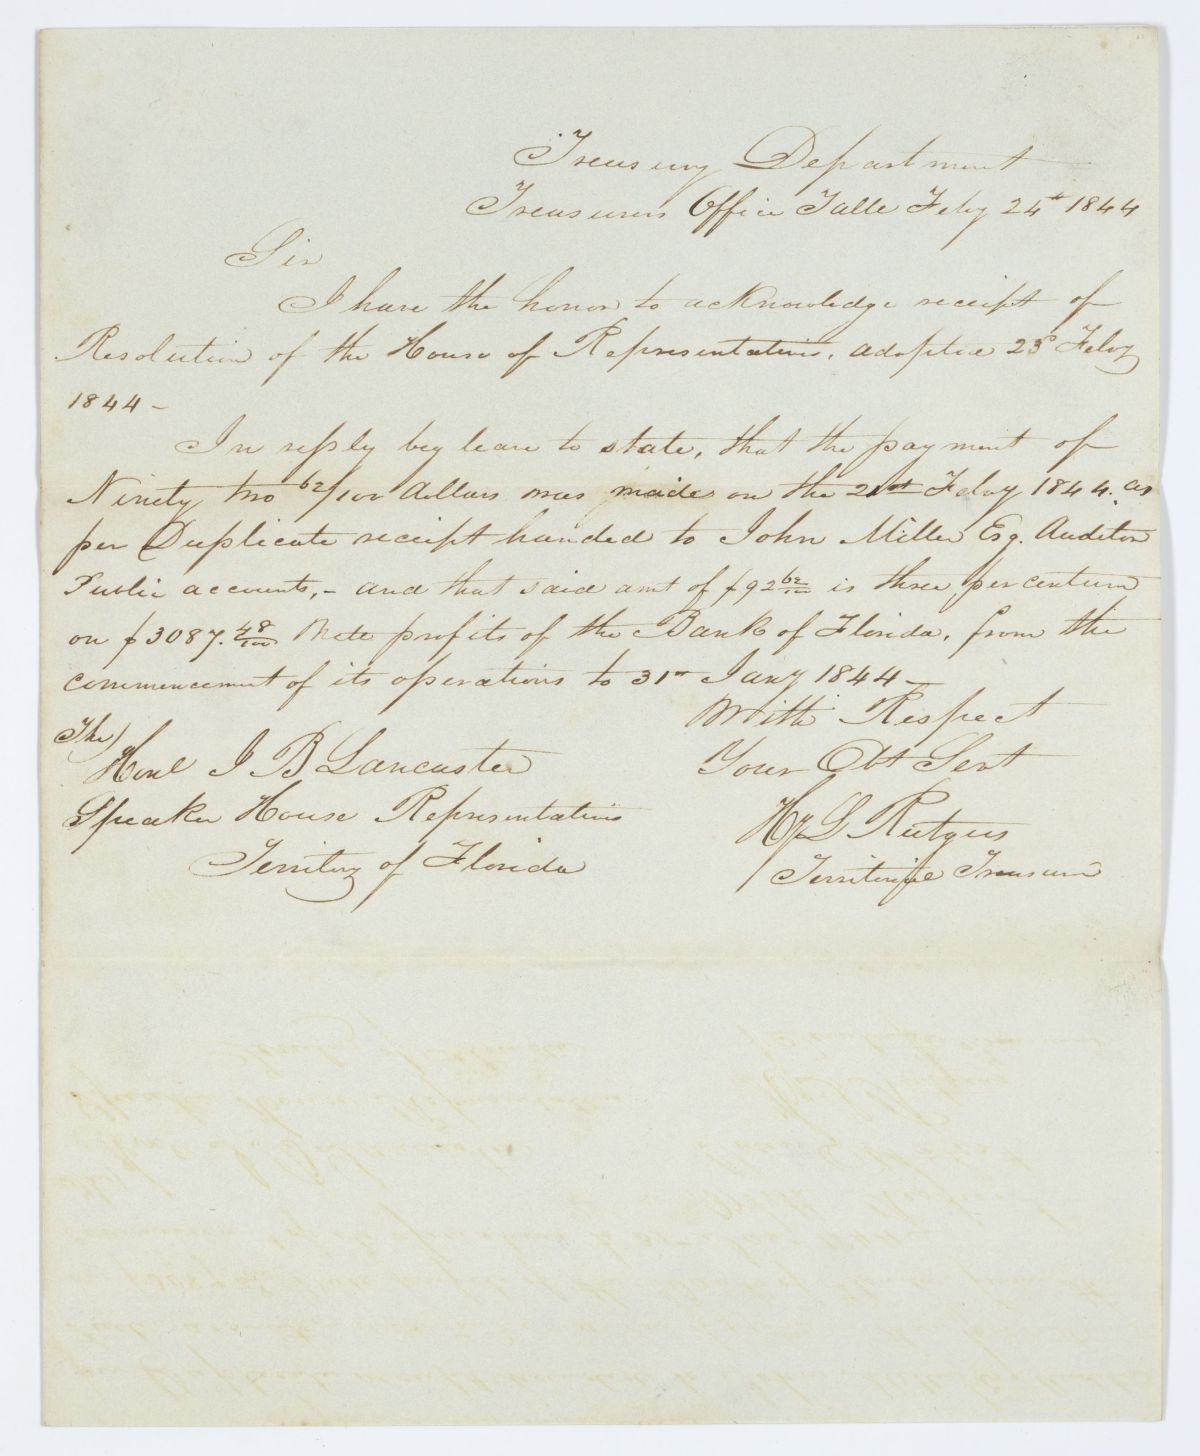 Treasury Department
Treasurers Office Talle Feby 24th 1844
Sir
I have the honor to acknowledge receipt of
Resolution of the House of Representatives, adopted 23d Feby
1844 -
In reply beg leave to state, that the payment of
Ninety two 62/100 dollars was made on the 21st Feby 1844. as
per Duplicate receipt handed to John Miller Esq. Auditor
Public accounts, - and that said amt of $92 62/100 is three per centum
on $3087. 48/100 Nett profits of the Bank of Florida, from the
commencement of its operations to 31st Jany 1844 -
With Respect
Your Obt Servt
Hy L Rutgers
Territorial Treasurer
The
Honl J B Lancaster
Speaker House Representatives
Territory of Florida